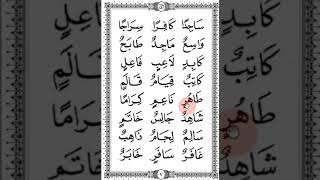 سَاجِدًا كَافِرًا سِرَاجًا
وَاسِعٌ مَاجِدٌ طَابَخٌ
كَابِدٍ لَاعِبٍ فَاعِلٍ
كَاتِبٌ قِيَامٌ قَالَمٍ
طَاهِرٍ نَاعِمٍ كِرَامًا
شَاهِدٌ جَالِسٌ خَاتَمٍ
سَالِمٌ لِجَامٌ ذَاهِبٌ
غَافَرٌ سَافَرٍ خَابَرٌ